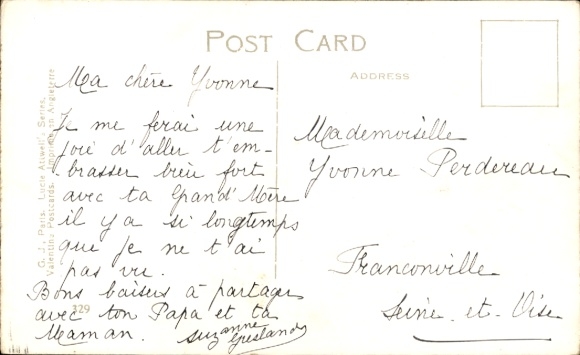 POST CARD
ADDRESS
G. J., Paris. Lucie Attwell's Series.
Valentine Postcards. Imprimé en Angleterre
Ma chère Yvonne
Je me ferai une
joie d'aller t'em-
brasser bien fort
avec ta Grand'Mère
il y a si longtemps
que je ne t'ai
pas vu.
Bons baisers à partager
avec ton Papa et ta
Maman.
Suzanne
329
Mademoiselle
Yvonne Perdereau
Franconville
Seine-et-Oise